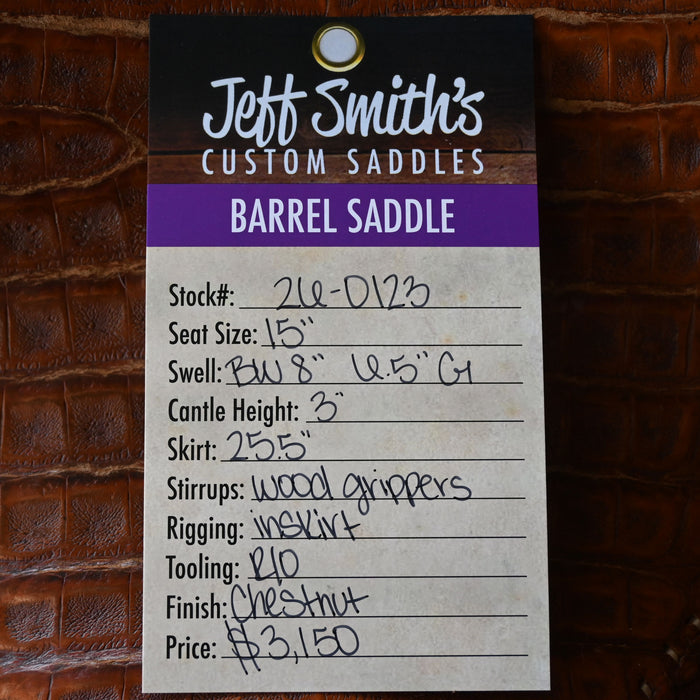 Jeff Smith's
CUSTOM SADDLES
BARREL SADDLE
Stock#: 26-0123
Seat Size: 15"
Swell: BW 8" 6.5" G
Cantle Height: 3"
Skirt: 25.5"
Stirrups: wood grippers
Rigging: inskirt
Tooling: R10
Finish: Chestnut
Price: $3,150